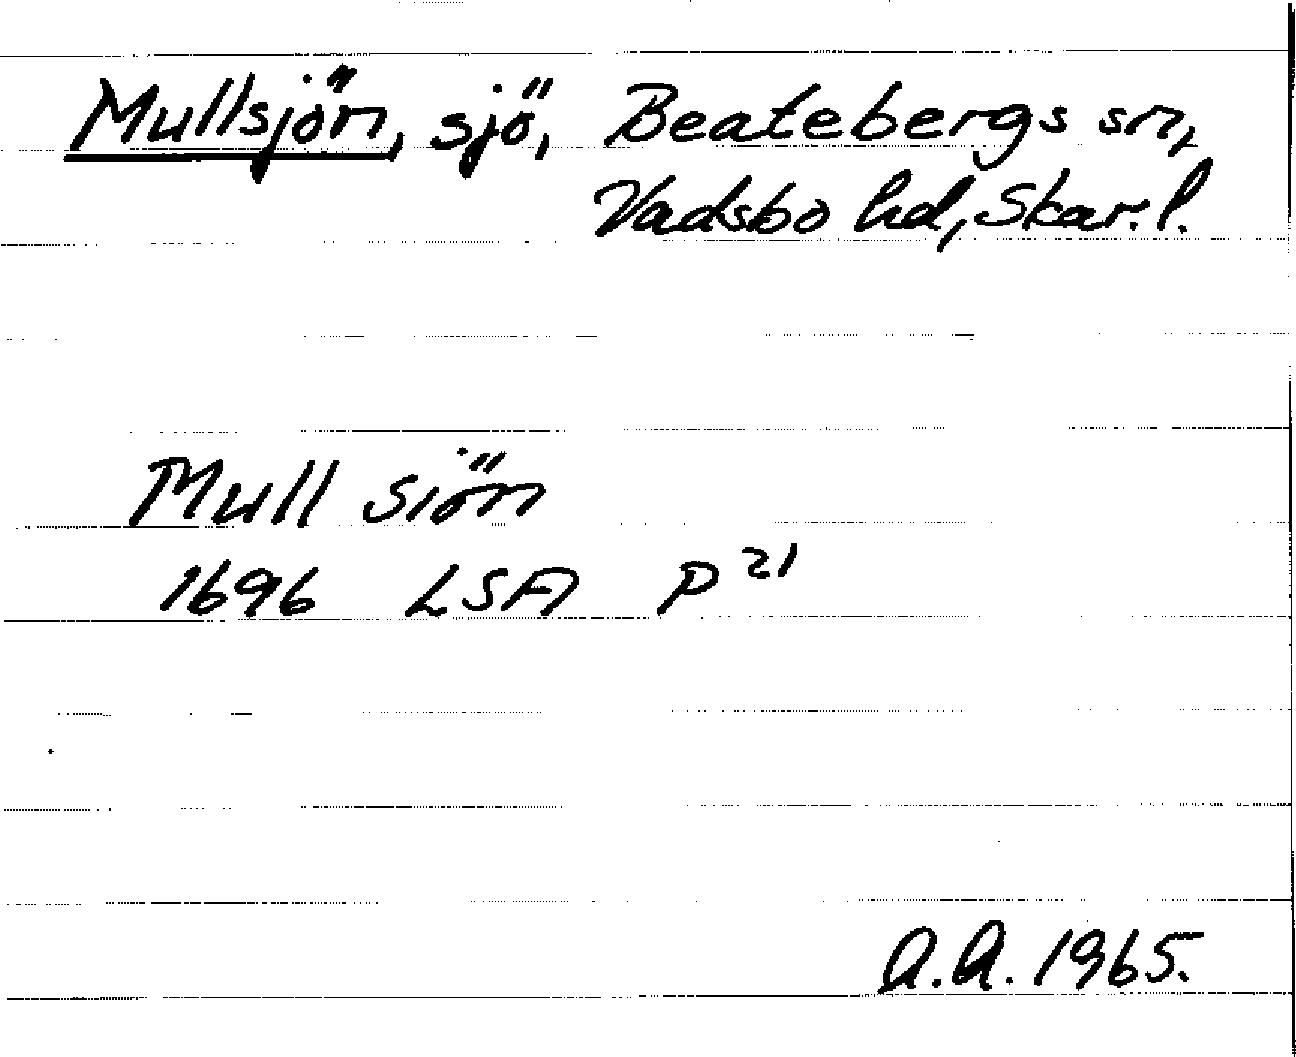 Mullsjön, sjö, Beatebergs sn,
Vadsbo hd, Skar. l.
Mull siön
1696 LSA P 21
A.A. 1965.